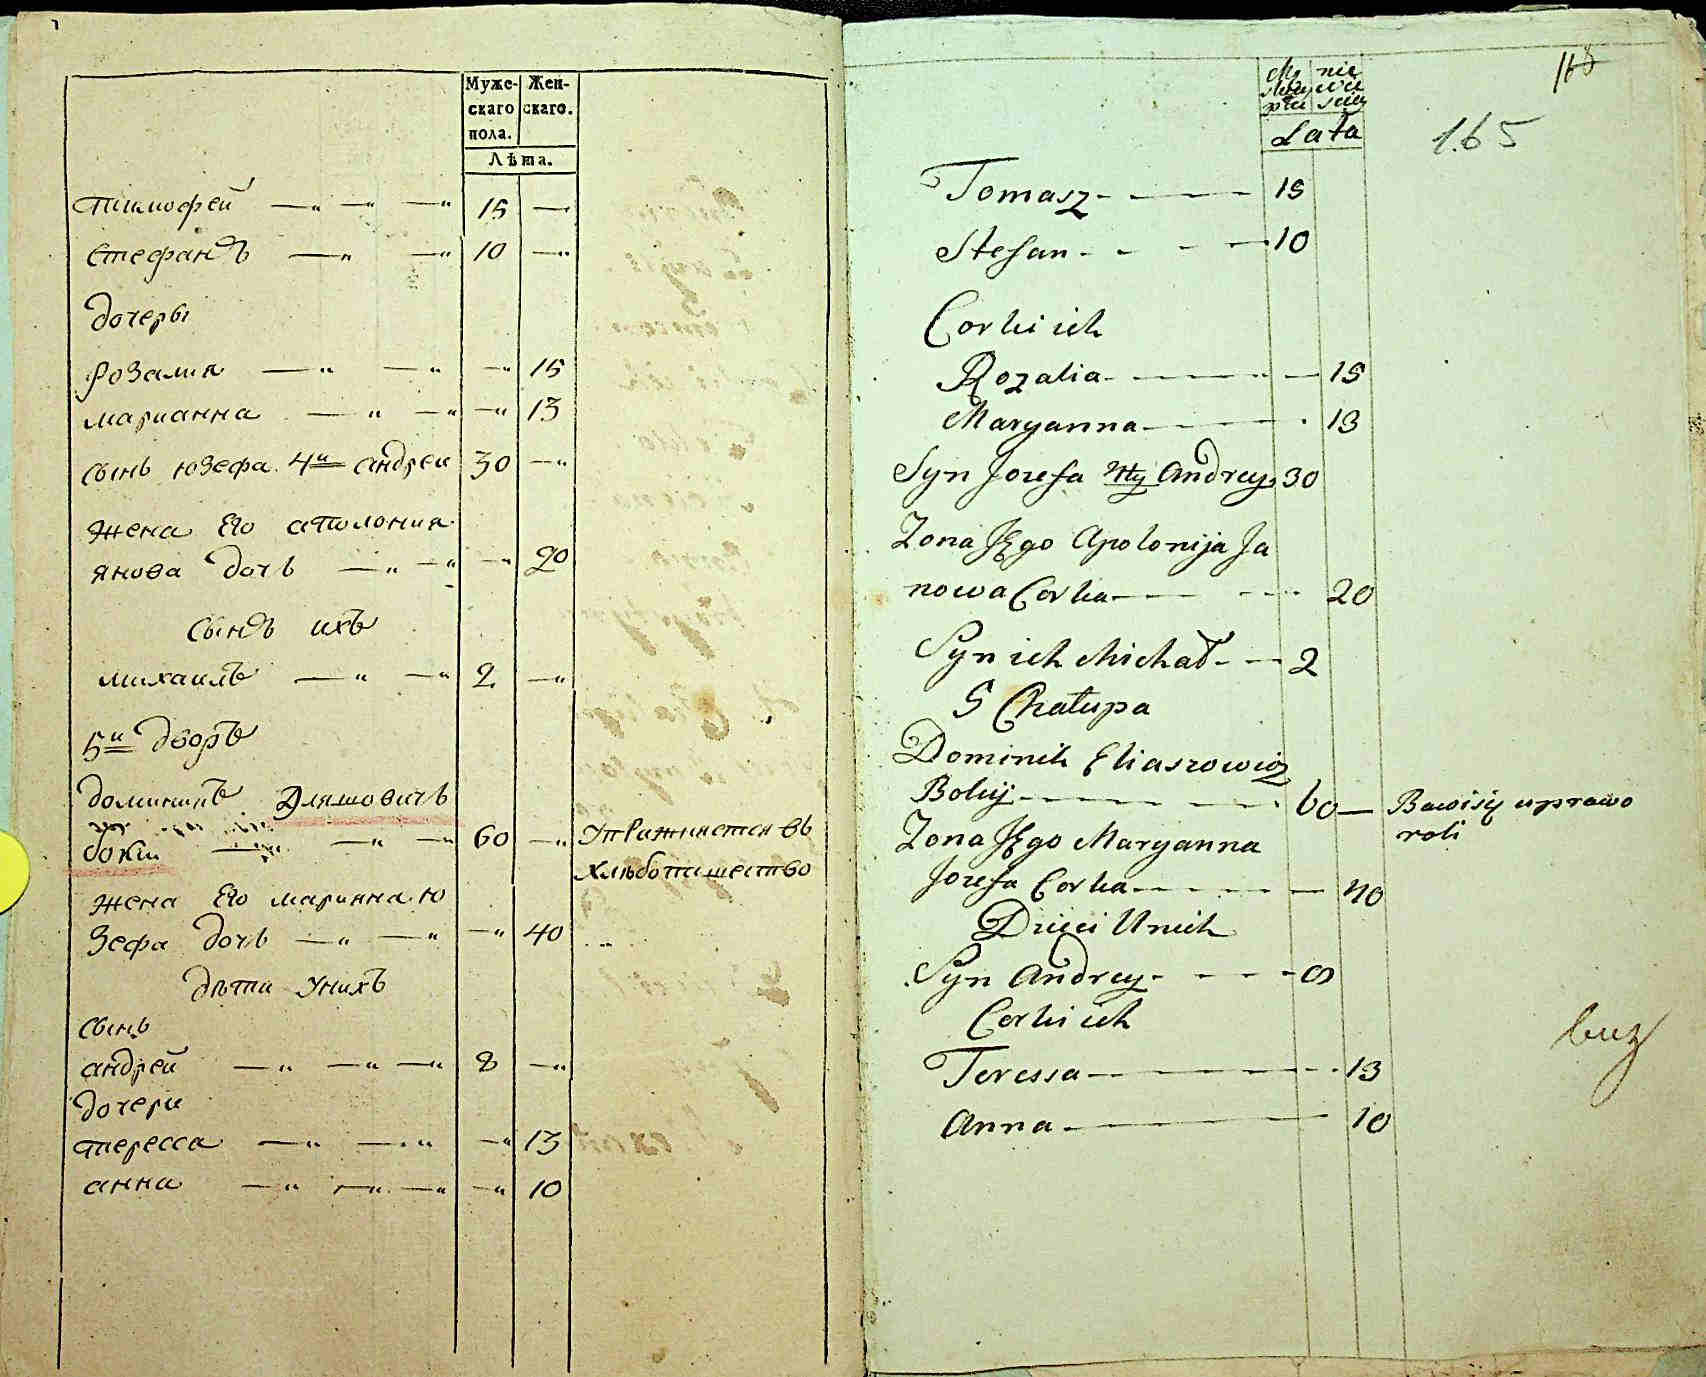 Муже- Жен-
скаго скаго.
пола.
Лѣта.
тимофей —„ —„ —„ 15 —„
стефанъ —„ —„ 10 —„
дочеры
розалия —„ —„ —„ 15
марианна —„ —„ —„ 13
сынъ юзефа 4й андреи 30 —„
жена Его аполония
янова дочь —„ —„ —„ 20
сынъ ихъ
михаилъ —„ —„ 2 —„
5й дворъ
доминикъ Эляшовичъ
бокій —„ —„ —„ 60 —„ упражняется въ
хлѣбопашество
жена Его марянна ю
зефа дочь —„ —„ —„ 40
дѣти унихъ
сынъ
андрей —„ —„ —„ 8 —„
дочери
тересса —„ —„ —„ 13
анна —„ —„ —„ —„ 10
165
Lata
Tomasz - — 15
Stefan - - - — 10
Corki ich
Rozalia - — — 15
Maryanna — 13
Syn Jozefa 4ty Andrey 30
Zona Jego Apolonija Ja
nowa Corka — 20
Syn ich Michał - — 2
5 Chałupa
Dominik Eliaszowicz
Bokiy — 60 — Bawisię uprawo
roli
Zona Jego Maryanna
Jozefa Corka — — 40
Dzieci Unich
Syn Andrey - - - - 8
Corki ich
Teressa — 13
Anna — 10